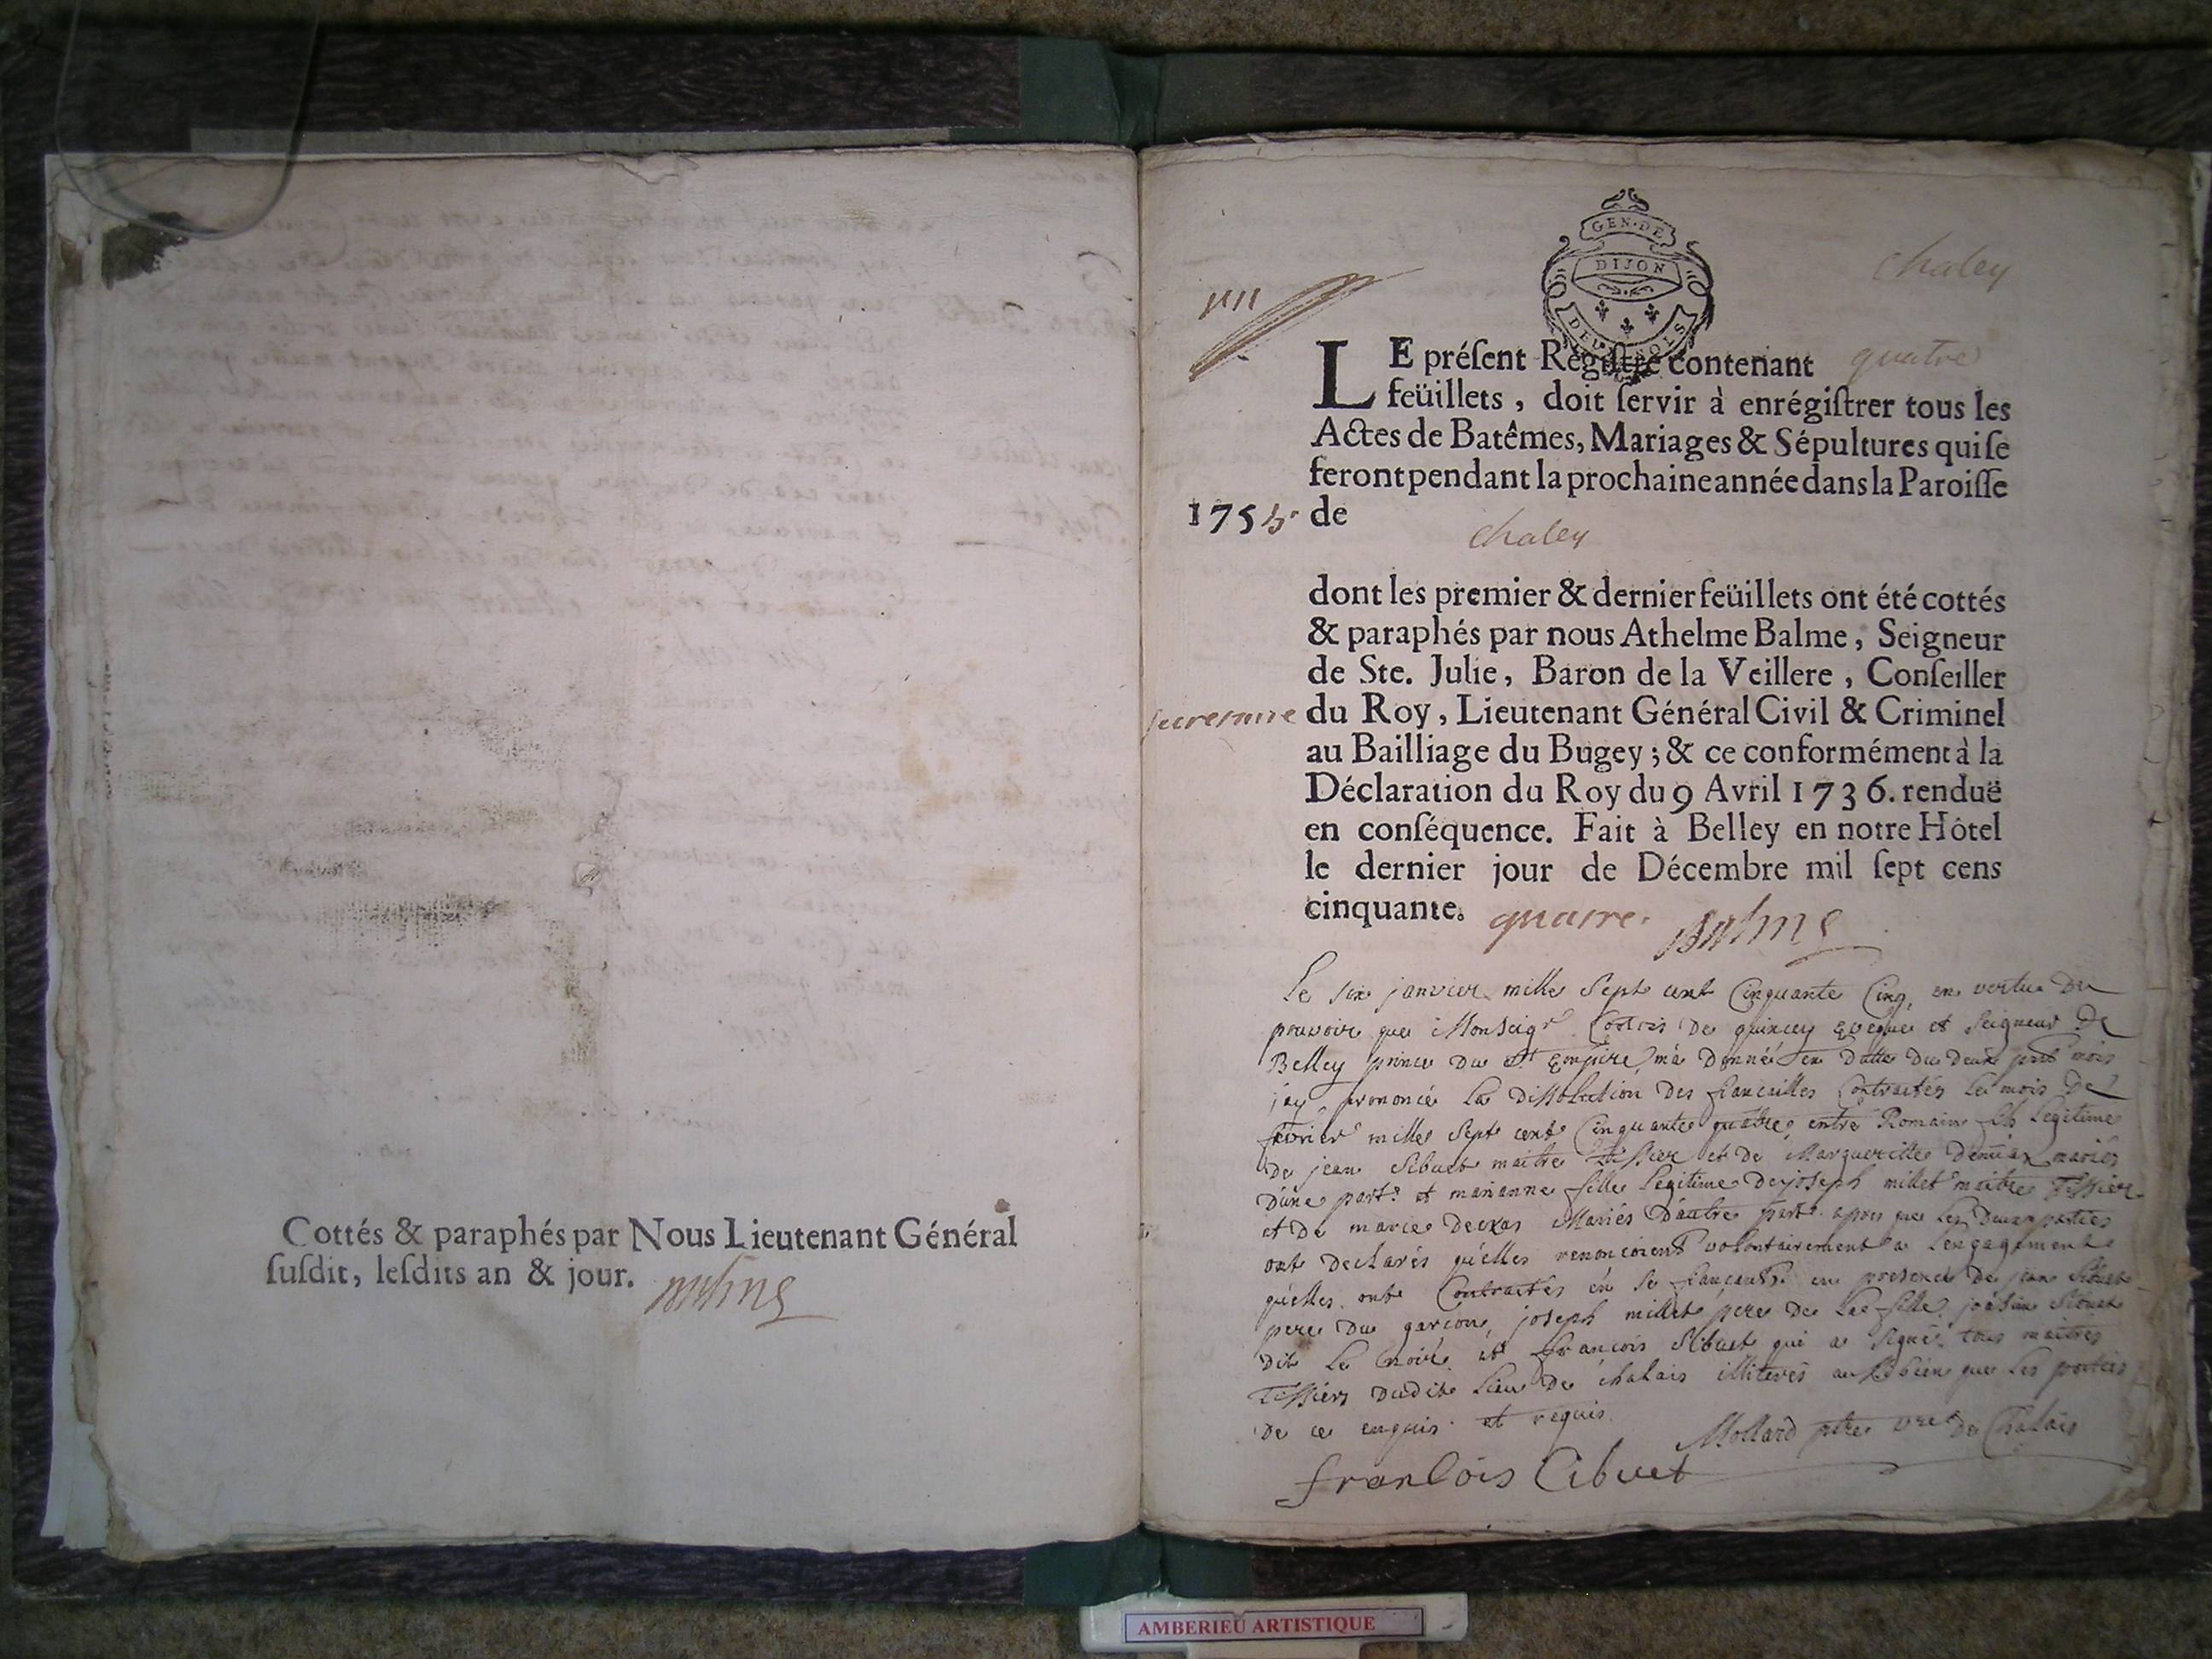 Cottés & paraphés par Nous Lieutenant Général
susdit, lesdits an & jour. Balme
GEN·DE
DIJON
DEUX SOLS
chaley
LE présent Registre contenant quatre
feüillets, doit servir à enrégistrer tous les
Actes de Batêmes, Mariages & Sépultures qui se
feront pendant la prochaine année dans la Paroisse
1755. de
chaley
dont les premier & dernier feüillets ont été cottés
& paraphés par nous Athelme Balme, Seigneur
de Ste. Julie, Baron de la Veillere, Conseiller
secretaire du Roy, Lieutenant Général Civil & Criminel
au Bailliage du Bugey; & ce conformément à la
Déclaration du Roy du 9 Avril 1736. renduë
en conséquence. Fait à Belley en notre Hôtel
le dernier jour de Décembre mil sept cens
cinquante. quatre. Balme
Le six janvier mille sept cent Cinquante Cinq, en vertu du
pouvoir que Monseigr Cortois de quincey Eveque et seigneur de
Belley prince du st Empire m'a donné en datte du deux prst mois
jay prononcé la dissolution des fiancailles Contractés le mois de
fevrier mille sept cent Cinquante quatre entre Romain fils Legitime
de jean Sibuet maitre Tissier et de Margueritte mariés
d'une part. et marianne fille Legitime de joseph millet maitre Tissier
et de marie Mariés d'autre part. apres que les deux parties
ont declarés qu'elles renoncoient volontairement a l'engagement
qu'elles ont Contractés en se fiancant. en presence de jean Sibuet
pere du garcon, joseph millet pere de la fille, Sibuet
dit le noir. et francois Sibuet qui a signé. tous maitres
Tissiers dudit Lieu de chalais illiterés aussi bien que les parties
de ce enquis et requis.
Mollard ptre de Chalais
franCois Cibuet
AMBERIEU ARTISTIQUE